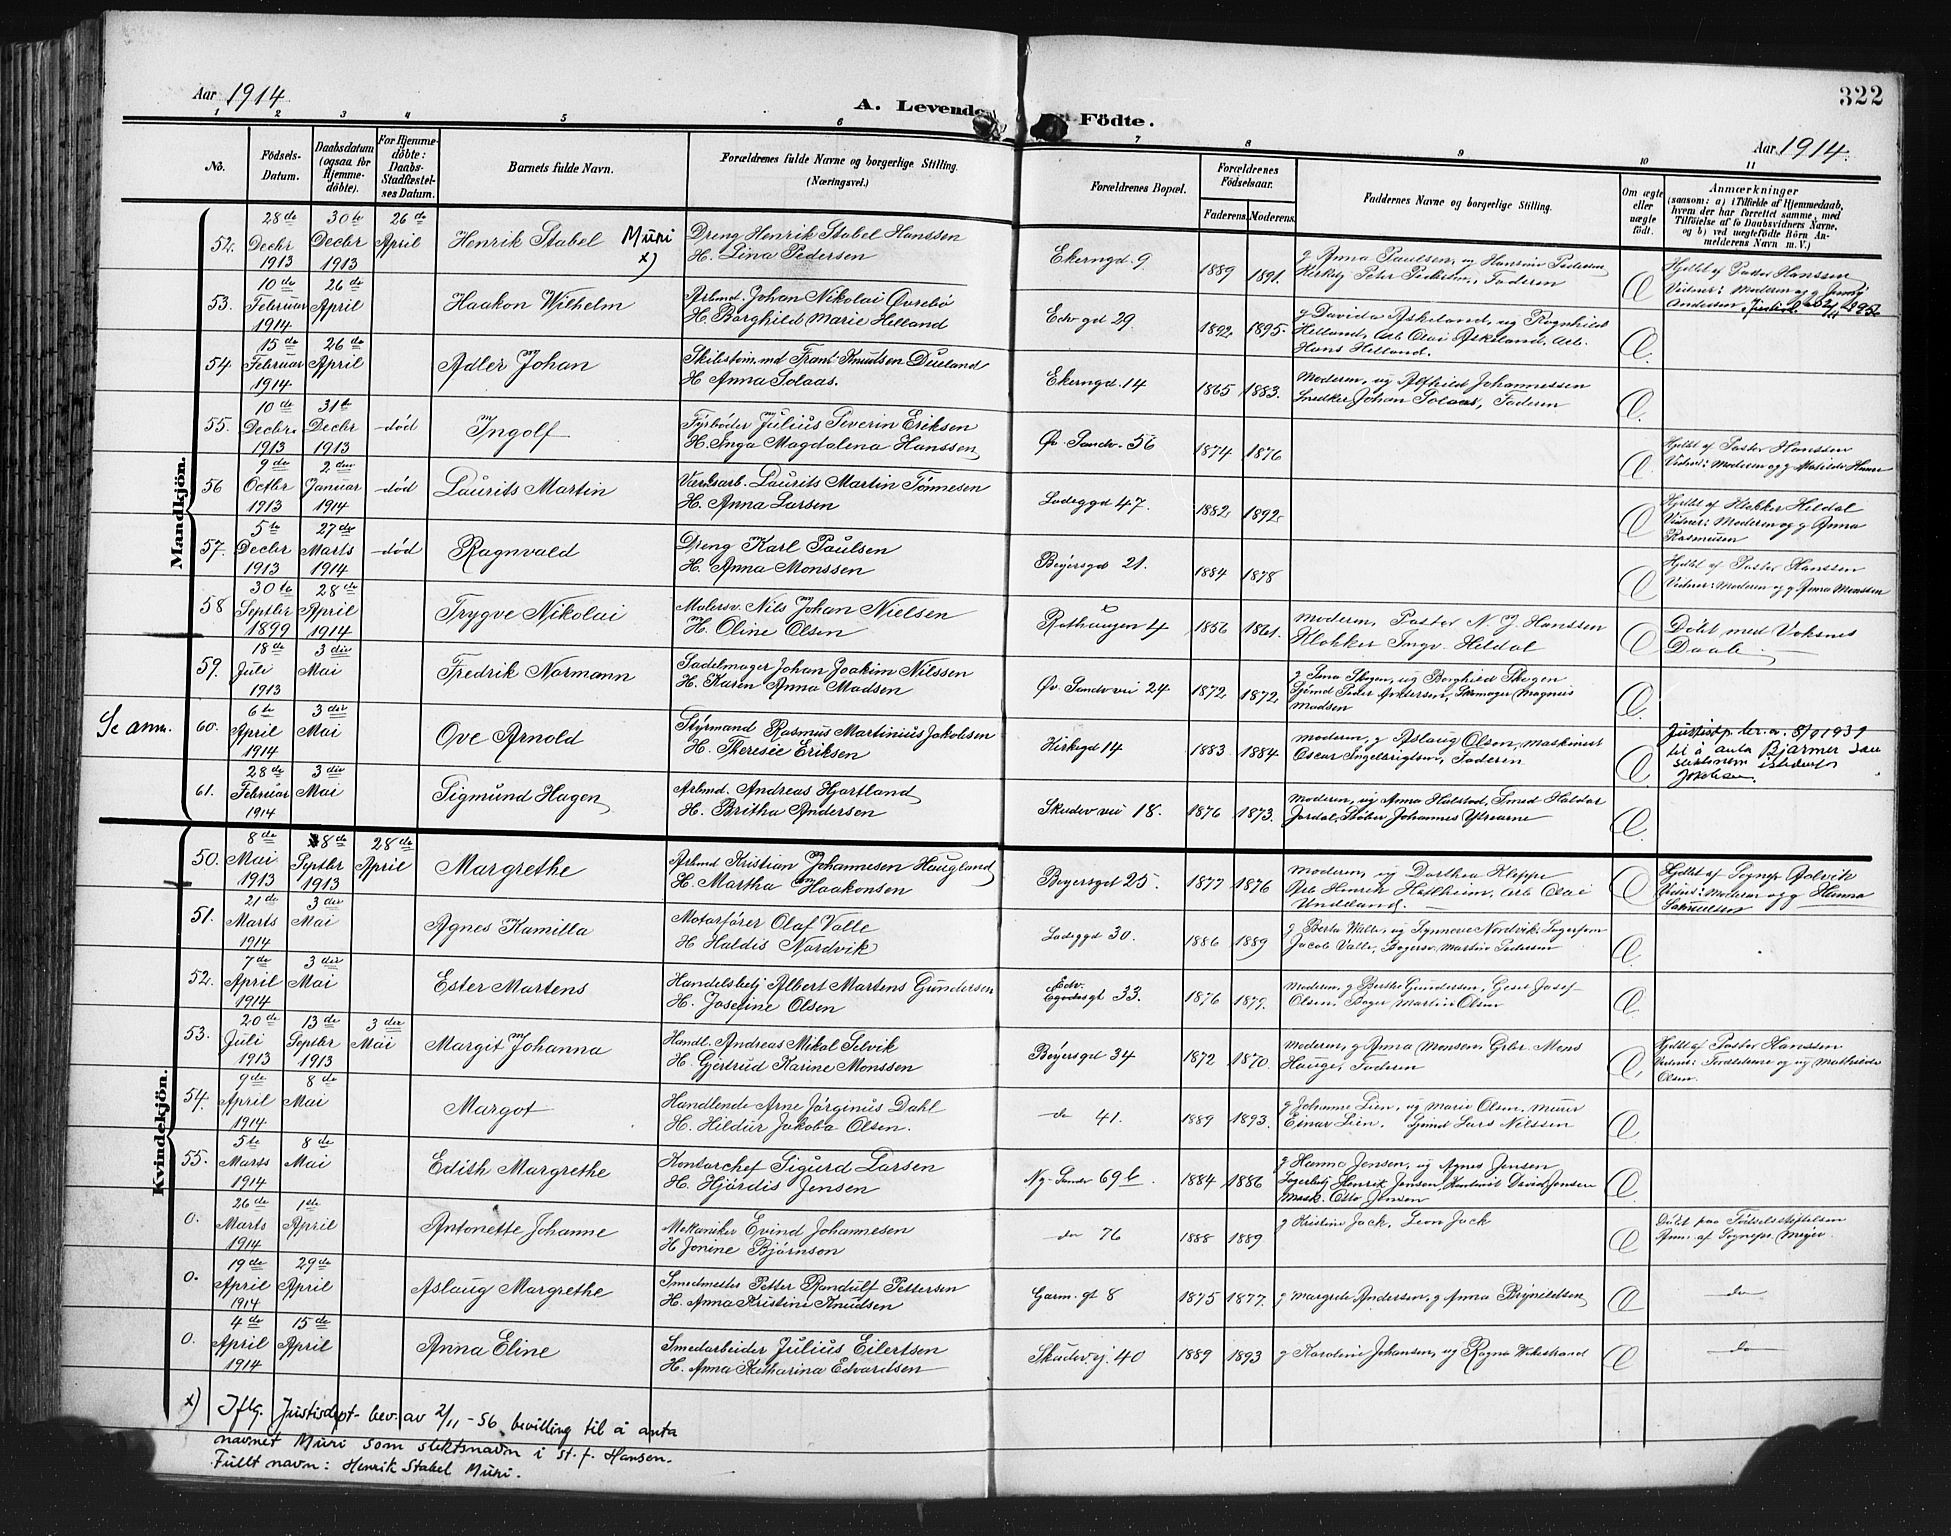 Aar 1914
A. Levende Födte.
322
Aar 1914.
1 2 3 4 5 6 7 8 9 10 11
No.
Födsels-Datum.
Daabsdatum (ogsaa for Hjemme-döbte).
For Hjemme-döbte: Daabs-Stadfæstel-ses Datum.
Barnets fulde Navn.
Forældrenes fulde Navne og borgerlige Stilling. (Næringsvei.)
Forældrenes Bopæl.
Forældrenes Födselsaar.
Faderens. Moderens.
Faddernes Navne og borgerlige Stilling.
Om ægte eller uægte födt.
Anmærkninger
(saasom: a) i Tilfælde af Hjemmedaab, hvem der har forrettet samme, med Tilföielse af to Daabsvidners Navne, og b) ved uægtefödte Börn An-melderens Navn m. V.)
Mandkjön.
52. 28de Decbr 1913 30te Decbr 1913 26de April Henrik Stabel Muri x)
Dreng Henrik Stabel Hanssen
H. Lina Pedersen
Ekerngd 9 1889 1891.
g Anna Paulsen, ug Hansine Pedersen
Kirketj Peter Pedersen, Faderen
Hjdbt af Pastor Hanssen
Vidner: Moderen og g Jenny
Andersen
53. 10de Februar 1914 26de April Haakon Wilhelm
Arbmd. Johan Nikolai Øvrebö
H. Borghild Marie Helland
Edv gd 29 1892 1895.
g Davida Askeland, ug Ragnhild
Helland, Arb Olai Askeland, Arb.
Hans Helland.
54. 15de Februar 1914 26de April Adler Johan
Skibstømmd Frant Knudsen Dueland
H Anna Solaas.
Ekerngd 14 1865 1883.
Moderen, ug Alfhild Johannessen
Snedker Johan Solaas, Faderen
55. 10de Decbr. 1913 31te Decbr 1913 død Ingolf
Fyrbøder Julius Severin Eriksen
H. Inga Magdalena Hanssen
Øv. Sandv. 56 1874 1876
Hjdbt af Pastor Hanssen
Vidner: Moderen og g Matilde
56 9de Octbr 1913 2den Januar 1914 død Laurits Martin
Værksarb. Laurits Martin Tönnesen
H. Anna Larsen
Ladeggd 47. 1882 1892
Hjdbt af Klokker Hildal
Vidner: Moderen og g Anna
Rasmussen
57. 5te Decbr 1913 27de Marts 1914 død Ragnvald
Dreng Karl Paulsen
H. Anna Monssen
Beyersgd 21. 1884 1878
Hjdbt af Pastor Hanssen
Vidner: Moderen og g Anna Monssen
58 30te Septbr 1899 28de April 1914 Trygve Nikolai
Malersv. Nils Johan Nielsen
H. Oline Olsen
Rothaugen 4 1856 1861.
Moderen, Pastor N. J. Hanssen
Klokker Ingv. Hildal
Döbt med Voksnes
Daab.
59. 18de Juli 1913 3die Mai Fredrik Normann
Sadelmager Johan Joakim Nilssen
H. Karen Anna Madsen
Øv. Sandv vei 24 1872 1872
g Jina Skogen, ug Borghild Skogen
Sjömd Peder Andersen, Magnus
Madsen
Se anm.
60. 6te April 1914 3die Mai Ove Arnold
Styrmand Rasmus Martinius Jakobsen
H. Theresie Eriksen
Kirkegd 14 1883 1884
Moderen, g Aslaug Olsen, Maskinist
Oscar Ingebrigtsen, Faderen
Justisdp. br. av. 8/0 1931
til å anta Bjarmer som
slektsnavn istedenfor
Jakobsen.
61. 28de Februar 1914 3die Mai Sigmund Hagen
Arbmd. Andreas Hjartland
H. Britha Andersen
Skudev vei 18. 1876 1873.
Moderen, ug Anna Halstad, Smed Haldor
Jordal, Støber Johannes Ytrearne
Kvindekjön.
50. 8de Mai 1913 28de Septbr 1913 28de April Margrethe
Arbmd Kristian Johannesen Haugland
H. Martha Haakonsen
Beyersgd 25. 1877 1876
Moderen, ug Dorthea Kleppe
Arb Henrik Hatlheim, Arb Olai
Undeland.
Hjdbt af Sognep. Solvik
Vidner: Moderen og g Hanna
Samuelsen
51. 21de Marts 1914 3die Mai Agnes Kamilla
Motorförer Olaf Valle
H Haldis Nordvik
Ladeggd 30. 1886 1889
g Berta Valle, ug Synneve Nordvik, Lagerform
Jacob Valle, Bagersv Martin Pedersen
52. 7de April 1914 3die Mai Ester Martens
Handelsbetj Albert Martens Gundersen
H. Josefine Olsen
Edv. Egedesgt 33. 1876 1879.
Moderen, g Berthe Gundersen, Gesel Josef
Olsen, Bager Martin Olsen
53. 20de Juli 1913 13de Septbr 1913 3die Mai Margit Johanna
Handl. Andreas Mikal Selvik
H. Gjertrud Karine Monssen
Beyersgd 34 1872 1870.
Moderen, g Anna Monsen, Grbr. Mons
Hauge, Faderen
Hjdbt af Pastor Hanssen
Vidner: Forældrene og ug Mathilde
Olsen.
54. 9de April 1914 8de Mai Margot
Handlende Arne Jörginus Dahl
H. Hildur Jakoba Olsen.
do 41. 1889 1893.
g Johanne Lien, ug Marie Olsen, Murer
Einar Lien. Sjömd Lars Nilssen
55. 5te Marts 1914 8de Mai Edith Margrethe
Kontorchef Sigurd Larsen
H. Hjördis Jensen
Ny-Sandv 69 b. 1884 1886
g Hanna Jensen, ug Agnes Jensen
Lagerbetj Henrik Jensen, Kontorist David Jensen
Mask. Otto Jensen
0. 26de Marts 1914 1ste April Antonette Johanne
Mekaniker Evind Johannesen
H Jonine Bjørnson
do 76 1888 1889
g Kristine Jack, Leon Jack
Döbt paa Födselsstiftelsen
Anm. af Sognepr. Meyer
0. 19de April 1914 29de April Aslaug Margrethe
Smedmester Petter Randulf Pettersen
H. Anna Kristine Knudsen
Garm. gt 8 1875 1877.
g Margrete Andersen, g Anna Brynildsen
do
0. 4de April 1914 15de April Anna Eline
Smedarbeider Julius Eilertsen
H. Anna Katharina Edvardsen
Skudevvej. 40 1889 1893
g Karoline Johansen, ug Ragna Wikestrand
do
x) Iflg. Justisdept- bev. av 2/11-56 bevilling til å anta
navnet Muri som slektsnavn i st. f. Hansen.
Fullt navn: Henrik Stabel Muri.